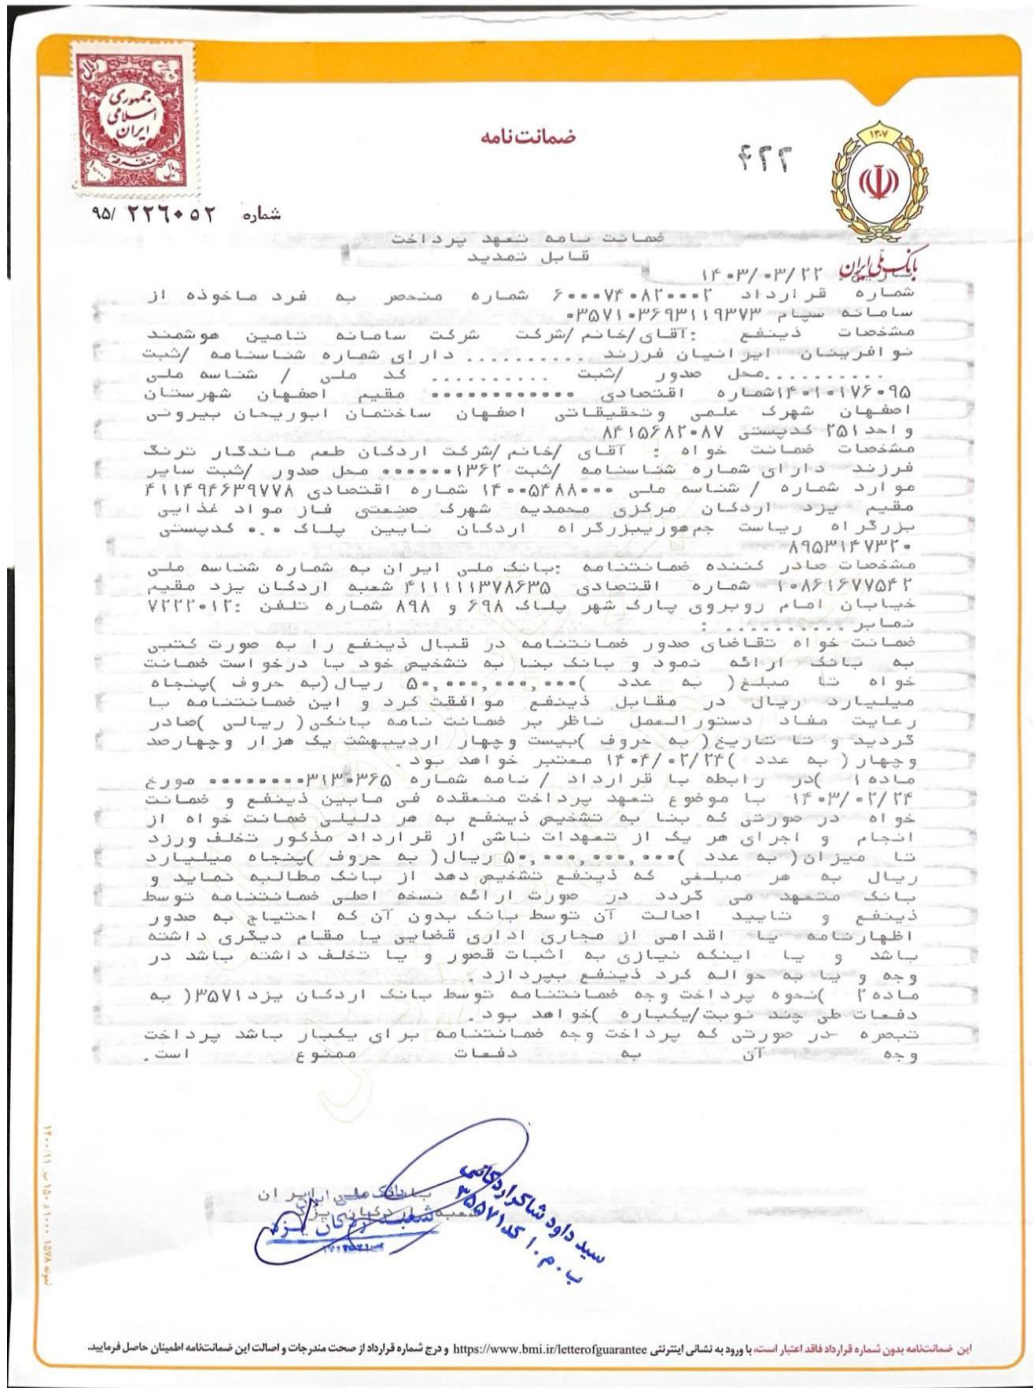 جمهوری
اسلامی
ایران
متفرقه
ضمانت‌نامه
۶۲۲
۱۳۰۷
شماره ۹۵/ ۲۲۶۰۵۲
ضمانت نامه تعهد پرداخت
قابل تمدید
بانک ملی ایران
۱۴۰۳/۰۳/۲۲
شماره قرارداد ۶۰۰۰۷۴۰۸۲۰۰۰۲ شماره منحصر به فرد ماخوذه از
سامانه سپام ۰۳۵۷۱۰۳۶۹۳۱۱۹۳۷۳
مشخصات ذینفع :آقای/خانم/شرکت شرکت سامانه تامین هوشمند
نوآفرینان ایرانیان فرزند .......... دارای شماره شناسنامه /ثبت
..........محل صدور /ثبت .......... کد ملی / شناسه ملی
۱۴۰۱۰۱۷۶۰۹۵شماره اقتصادی ۰۰۰۰۰۰۰۰۰۰۰۰ مقیم اصفهان شهرستان
اصفهان شهرک علمی وتحقیقاتی اصفهان ساختمان ابوریحان بیرونی
واحد۲۵۱ کدپستی ۸۴۱۵۶۸۲۰۸۷
مشخصات ضمانت خواه : آقای /خانم/شرکت اردکان طعم ماندگار ترنگ
فرزند دارای شماره شناسنامه /ثبت ۱۳۶۲۰۰۰۰۰۰ محل صدور /ثبت سایر
موارد شماره / شناسه ملی ۱۴۰۰۵۴۸۸۰۰۰ شماره اقتصادی ۴۱۱۴۹۴۶۳۹۷۷۸
مقیم یزد اردکان مرکزی محمدیه شهرک صنعتی فاز مواد غذایی
بزرگراه ریاست جمهوریبزرگراه اردکان نایین پلاک ۰.۰ کدپستی
۸۹۵۳۱۴۷۳۲۰
مشخصات صادر کننده ضمانتنامه :بانک ملی ایران به شماره شناسه ملی
۱۰۸۶۱۶۷۷۵۴۲ شماره اقتصادی ۴۱۱۱۱۱۳۷۸۶۳۵ شعبه اردکان یزد مقیم
خیابان امام روبروی پارک شهر پلاک ۶۹۸ و ۸۹۸ شماره تلفن :۷۲۲۲۰۱۲
نمابر.......... :
ضمانت خواه تقاضای صدور ضمانتنامه در قبال ذینفع را به صورت کتبی
به بانک ارائه نمود و بانک بنا به تشخیص خود با درخواست ضمانت
خواه تا مبلغ( به عدد )۵۰,۰۰۰,۰۰۰,۰۰۰ ریال(به حروف )پنجاه
میلیارد ریال در مقابل ذینفع موافقت کرد و این ضمانتنامه با
رعایت مفاد دستورالعمل ناظر بر ضمانت نامه بانکی( ریالی )صادر
گردید و تا تاریخ( به حروف )بیست وچهار اردیبهشت یک هزار وچهارصد
وچهار( به عدد )۱۴۰۴/۰۲/۲۴ معتبر خواهد بود.
ماده۱ )در رابطه با قرارداد / نامه شماره ۳۱۳۰۳۶۵۰۰۰۰۰۰۰۰ مورخ
۱۴۰۳/۰۲/۲۴ با موضوع تعهد پرداخت منعقده فی مابین ذینفع و ضمانت
خواه در صورتی که بنا به تشخیص ذینفع به هر دلیلی ضمانت خواه از
انجام و اجرای هر یک از تعهدات ناشی از قرارداد مذکور تخلف ورزد
تا میزان( به عدد )۵۰,۰۰۰,۰۰۰,۰۰۰ ریال( به حروف )پنجاه میلیارد
ریال به هر مبلغی که ذینفع تشخیص دهد از بانک مطالبه نماید و
بانک متعهد می گردد در صورت ارائه نسخه اصلی ضمانتنامه توسط
ذینفع و تایید اصالت آن توسط بانک بدون آن که احتیاج به صدور
اظهارنامه یا اقدامی از مجاری اداری قضایی یا مقام دیگری داشته
باشد و یا اینکه نیازی به اثبات قصور و یا تخلف داشته باشد در
وجه و یا به حواله کرد ذینفع بپردازد.
ماده۲ )نحوه پرداخت وجه ضمانتنامه توسط بانک اردکان یزد۳۵۷۱( به
دفعات طی چند نوبت/یکباره )خواهد بود.
تبصره -در صورتی که پرداخت وجه ضمانتنامه برای یکبار باشد پرداخت
وجه آن به دفعات ممنوع است.
بانک ملی ایران
شعبه اردکان یزد
سید داود شاکراردکانی
ب.م.ا کد۳۵۵۷۱
این ضمانت‌نامه بدون شماره قرارداد فاقد اعتبار است، با ورود به نشانی اینترنتی https://www.bmi.ir/letterofguarantee و درج شماره قرارداد از صحت مندرجات و اصالت این ضمانت‌نامه اطمینان حاصل فرمایید.